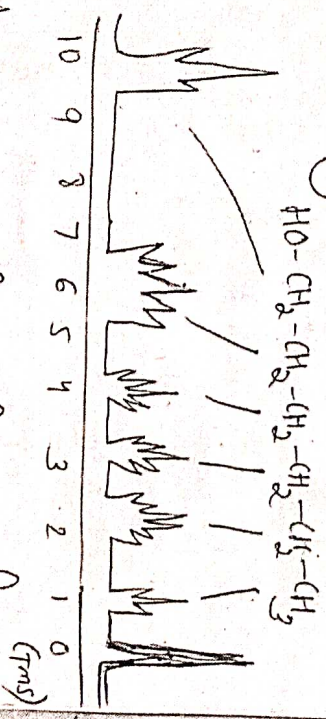 HO-CH₂-CH₂-CH₂-CH₂-CH₂-CH₃
10 9 8 7 6 5 4 3 2 1 0
(TMS)